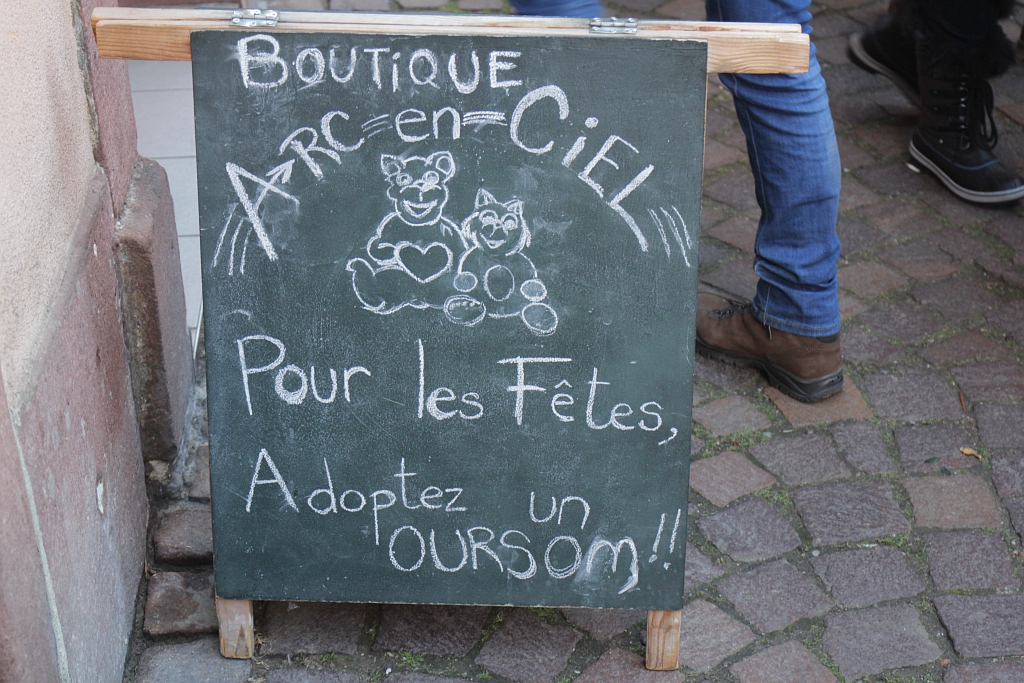 BOUTiQUE
ARC-en-CiEL
Pour les Fêtes,
Adoptez un
OURSOm!!